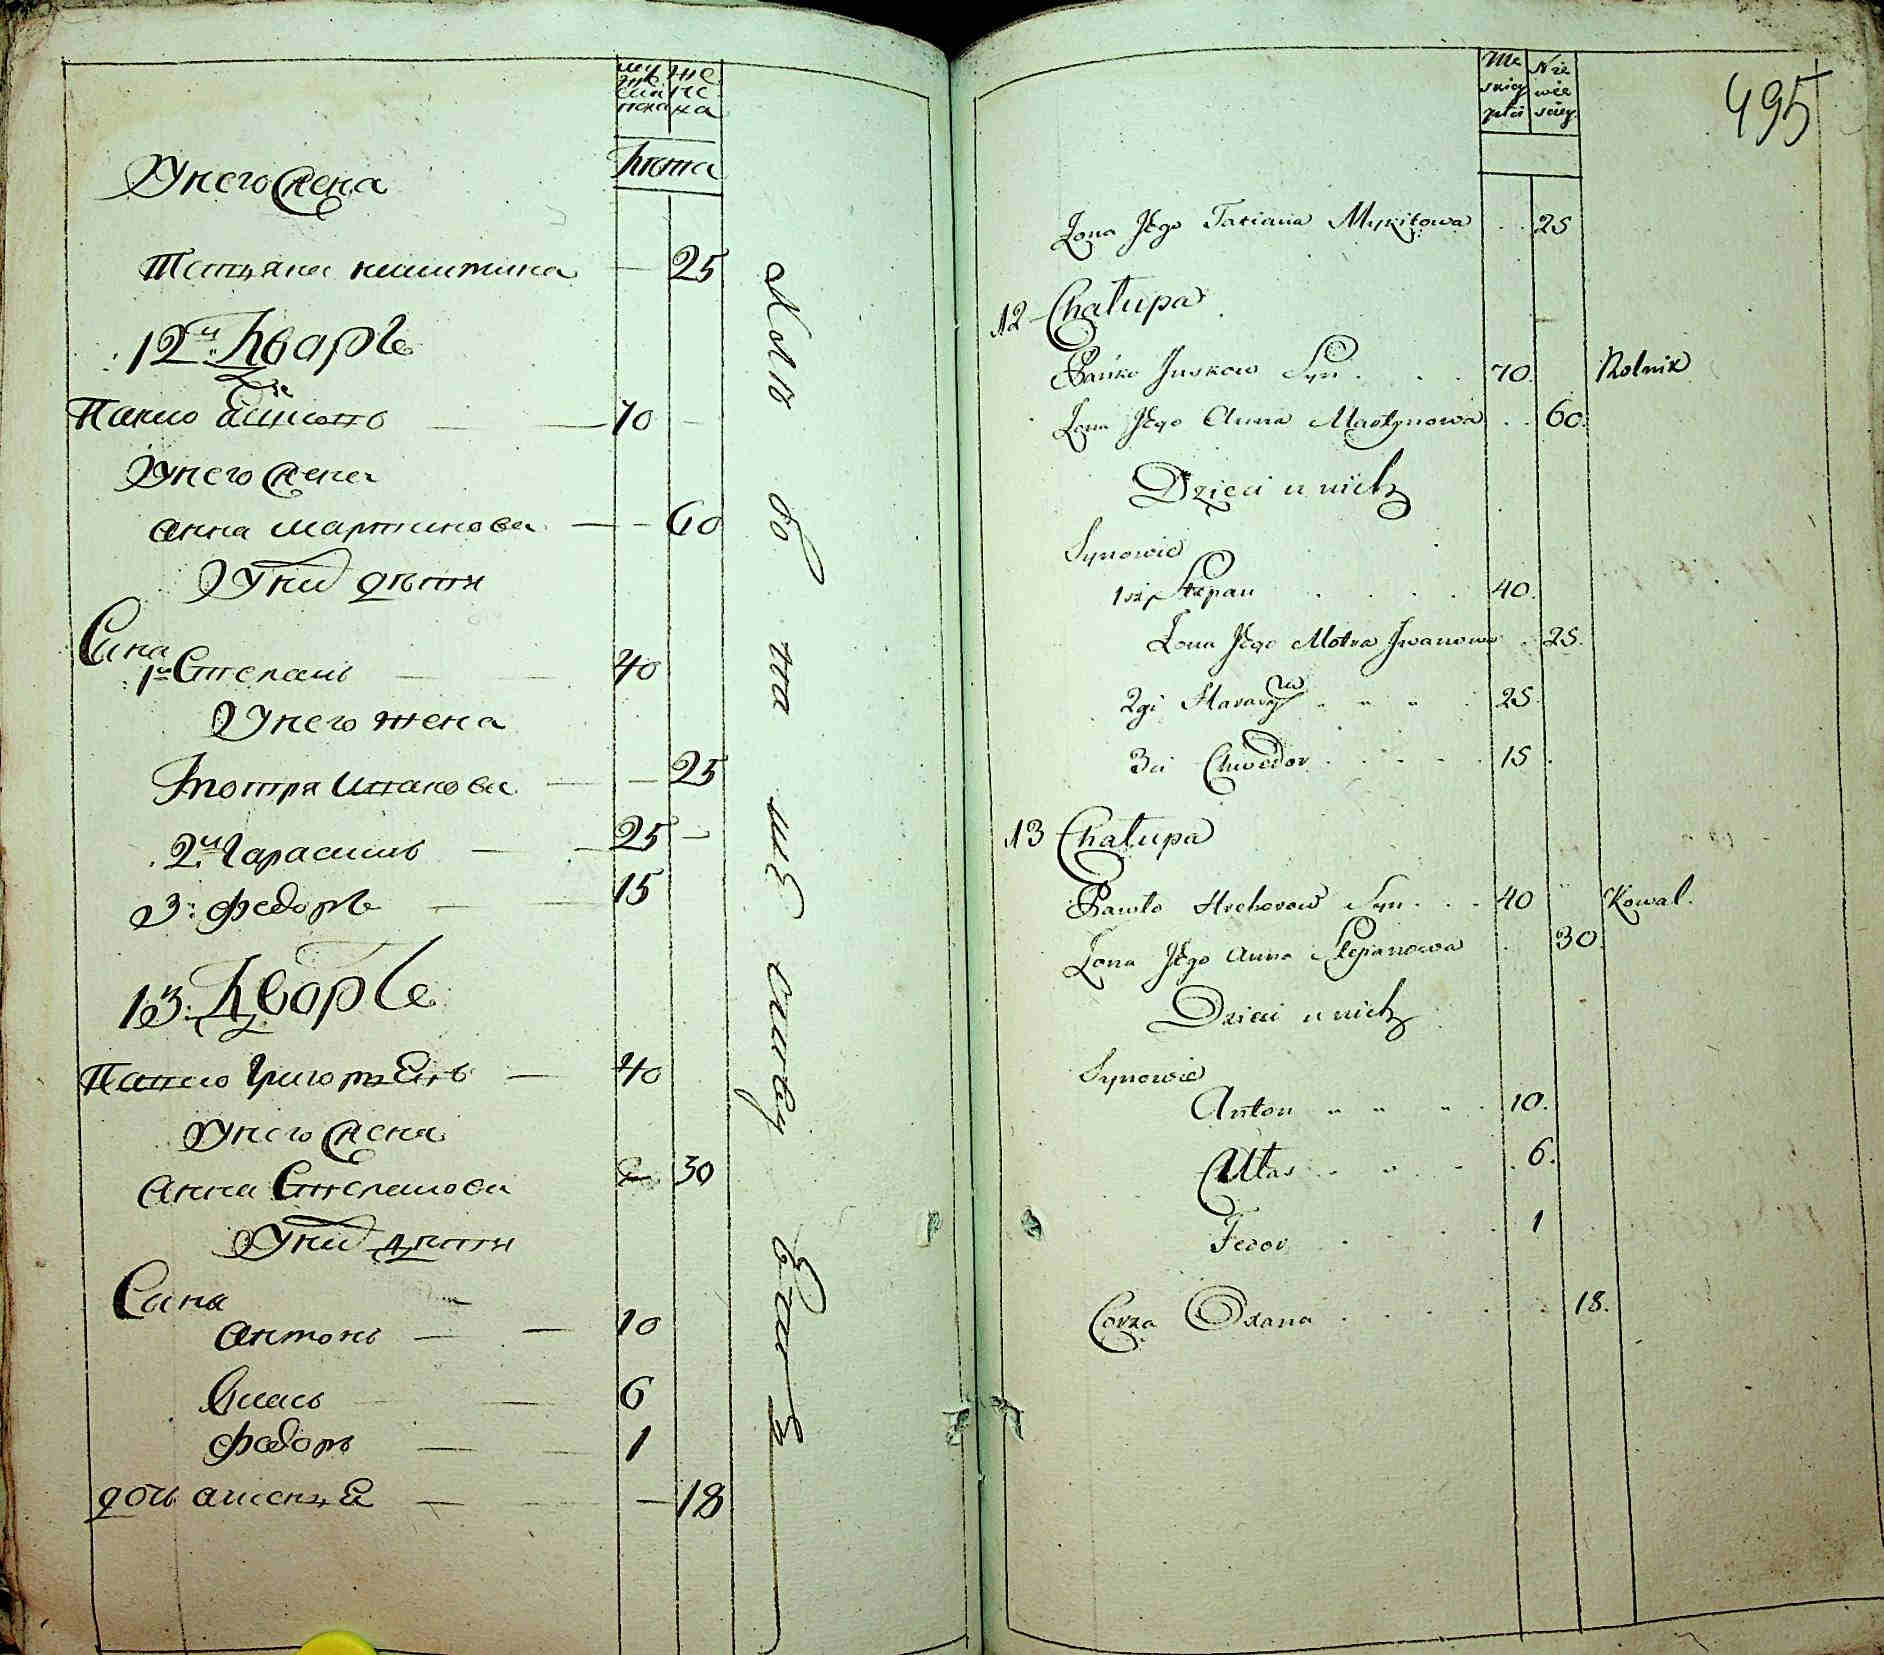 му
же
ска
пола
же
нс
ка
Лета
У него жена
Татяна никитина — 25
12й Дворъ
Панко 70 —
У него жена
анна мартинова — 60
У них дѣти
Сина
1й Степанъ — — 40
У него жена
Мотря иванова — — 25
2й Гарасимъ — — 25 —
3: федоръ — — 15
13: Дворъ
Павло Григорьевъ — 40
У него жена
анна Степанова 30
У них дѣти
Сина
антонъ — — 10
Власъ — — 6
федоръ — — 1
дочь — — — 18
495
Mę
skiej
płci
Nie
wie
ściey
Żona Jego Tatiana Mykitowa . . 25
12 Chałupa
Pańko Juskow Syn . . . 70. Rolnik
Żona Jego Anna Martynowa . . 60.
Dzieci u nich
Synowie
1szy Stepan . . . . 40.
Żona Jego Motra Iwanowa . 25.
2gi Harasym „ „ „ . 25.
3ci Chwedor . . . . . 15 .
13 Chałupa
Pawło Hrehorow Syn . . . 40 Kowal.
Żona Jego Anna Stepanowa . 30.
Dzieci u nich
Synowie
Anton „ „ „ . 10.
Ułas . . . . 6.
Fedor . . . . 1
Corka Oxana . . . . . 18.